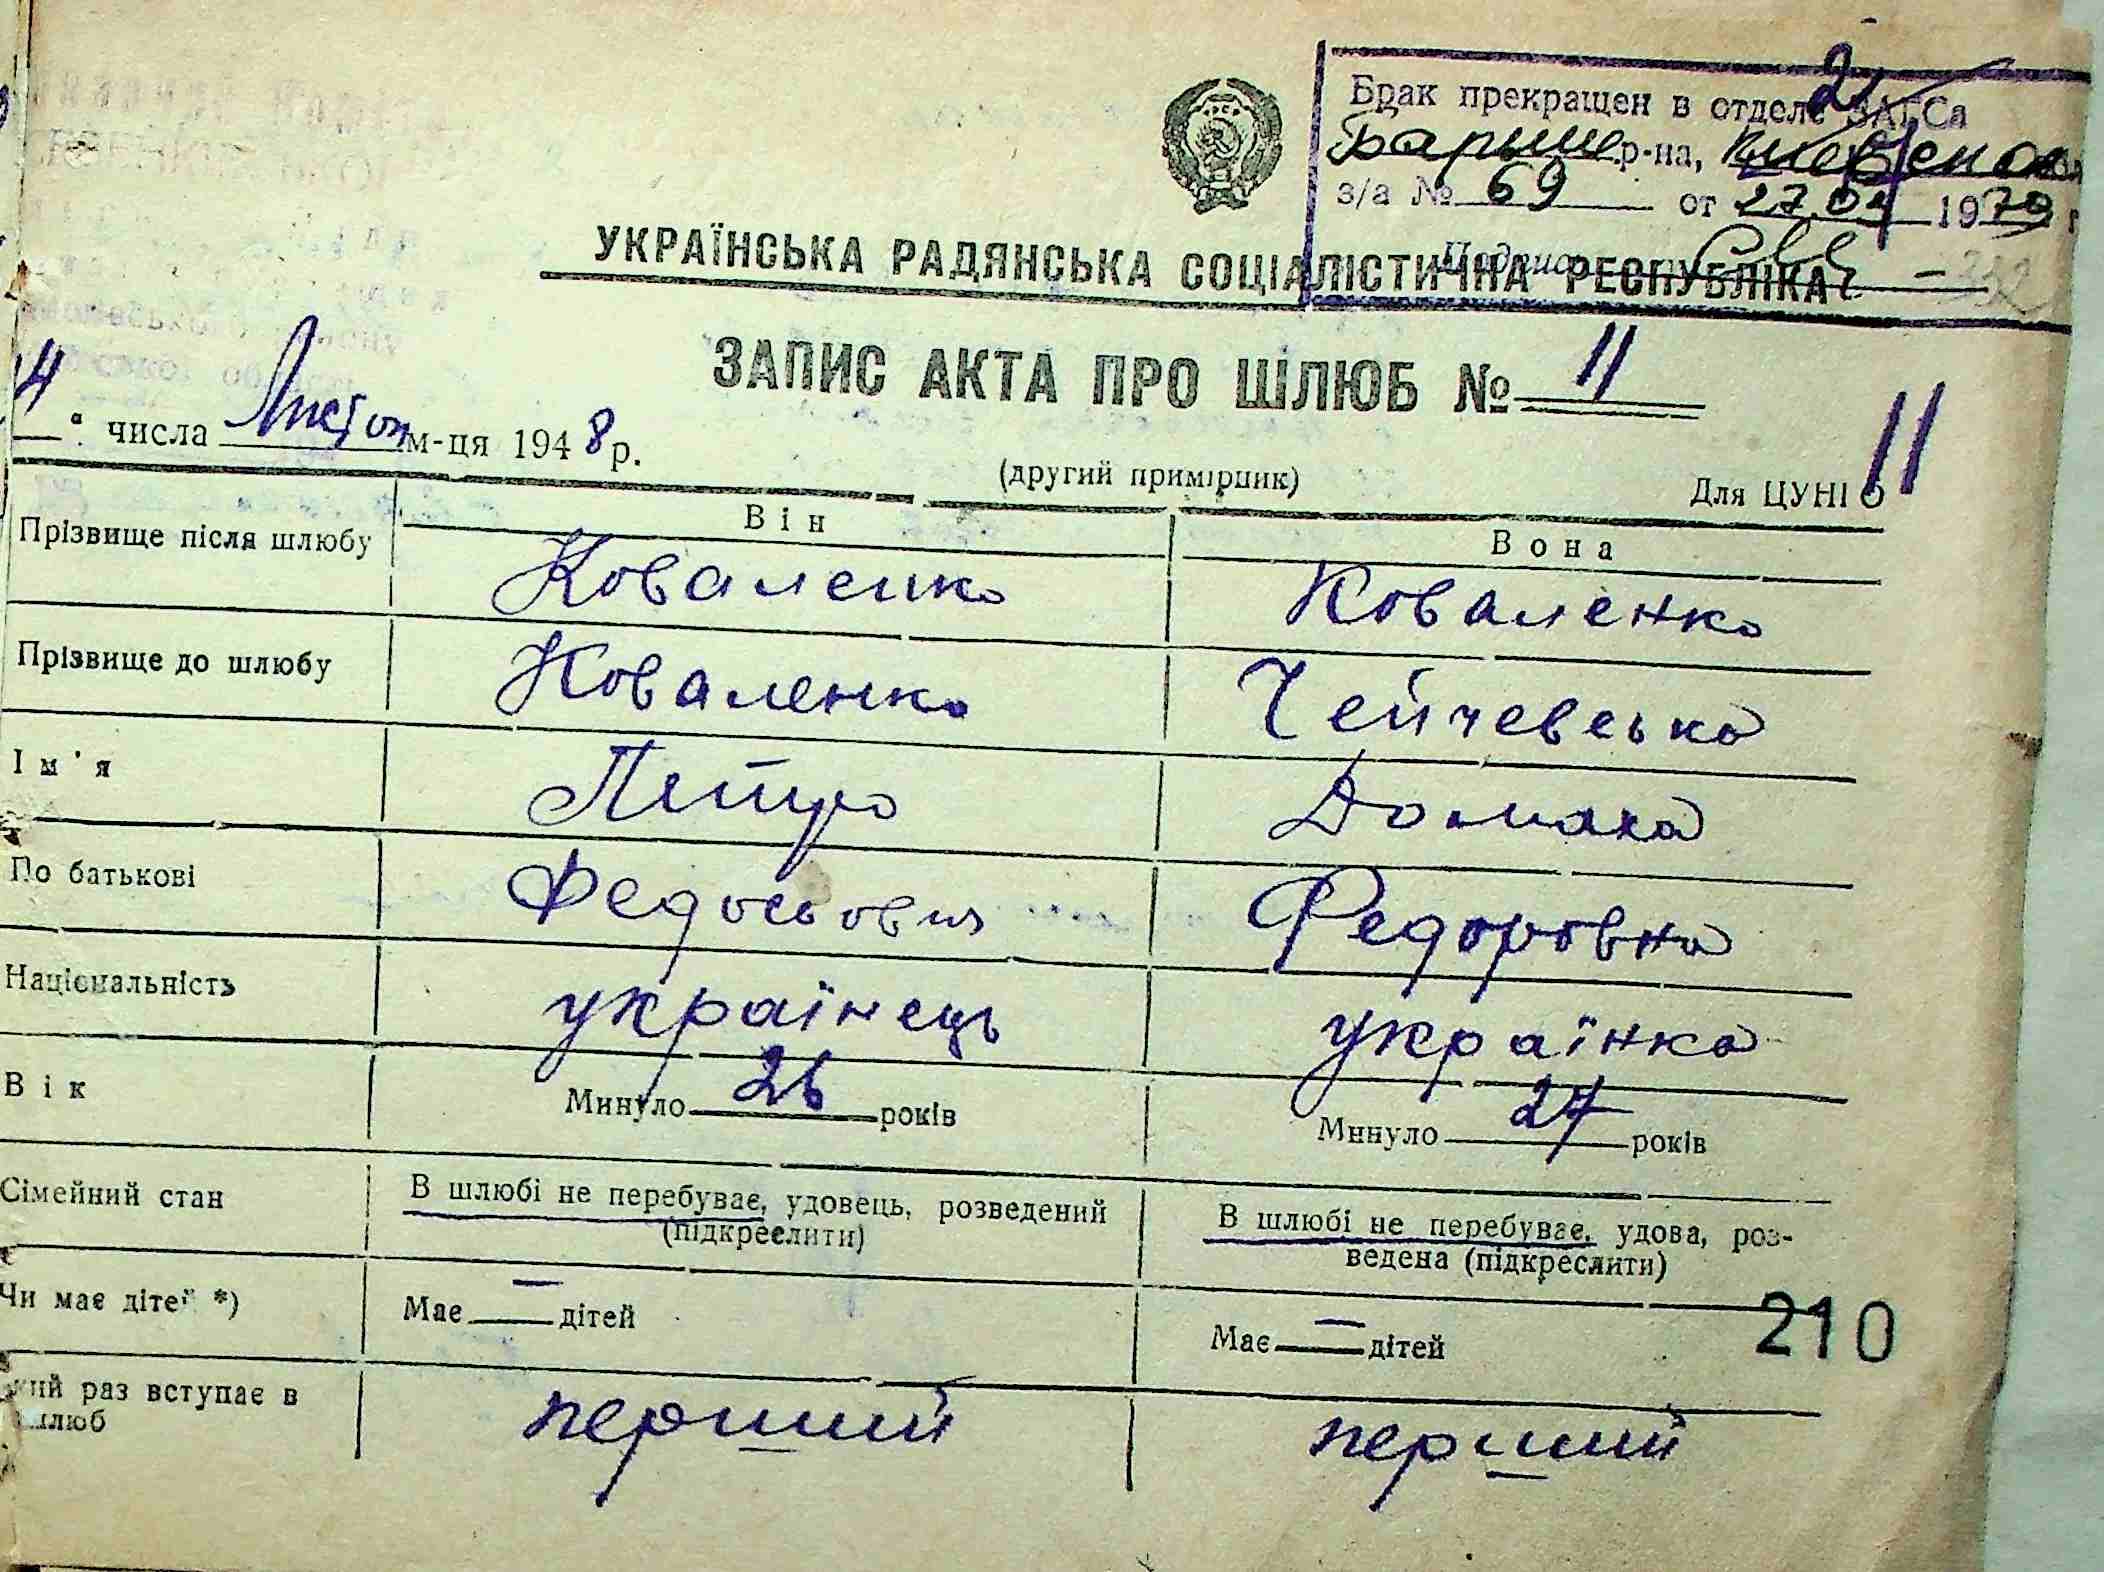 Брак прекращен в отделе ЗАГСа
Барыше р-на, Киевской
з/а № 69 от 27.04 1979 г
УКРАЇНСЬКА РАДЯНСЬКА СОЦІАЛІСТИЧНА РЕСПУБЛІКА
ЗАПИС АКТА ПРО ШЛЮБ № 11
4 числа Листоп м-ця 1948 р.
(другий примірник)
Для ЦУНІО
11
Він Вона
Прізвище після шлюбу Коваленко Коваленко
Прізвище до шлюбу Коваленко Чейчевська
Ім'я Петро Домаха
По батькові Федосьович Федоровна
Національність українець українка
Вік Минуло 26 років Минуло 27 років
Сімейний стан В шлюбі не перебуває, удовець, розведений В шлюбі не перебуває, удова, роз-
(підкреслити) ведена (підкреслити)
Чи має дітей *) Має — дітей Має — дітей
210
кий раз вступає в перший перший
шлюб